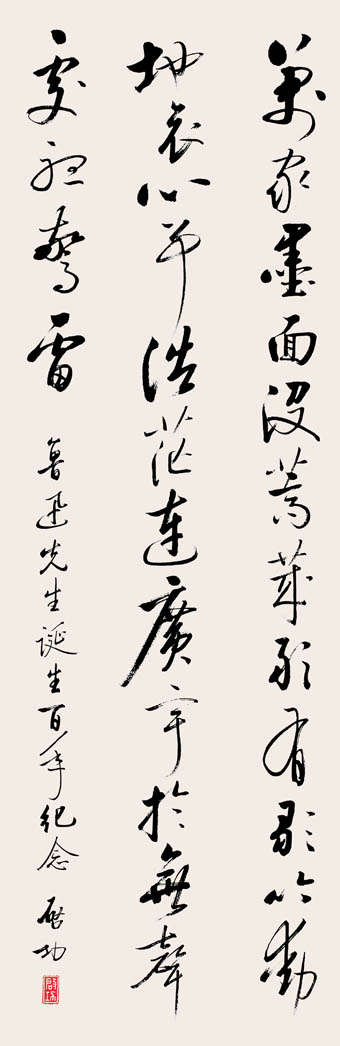 萬家墨面沒蒿萊敢有歌吟動
地哀心事浩茫連廣宇於無聲
處聽驚雷 魯迅先生誕生百年紀念 啟功
啟功